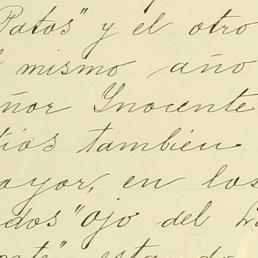 Patos" y el otro
mismo año
ñor Ynocente
tios tambien
ayor, en los
dos "ojo del